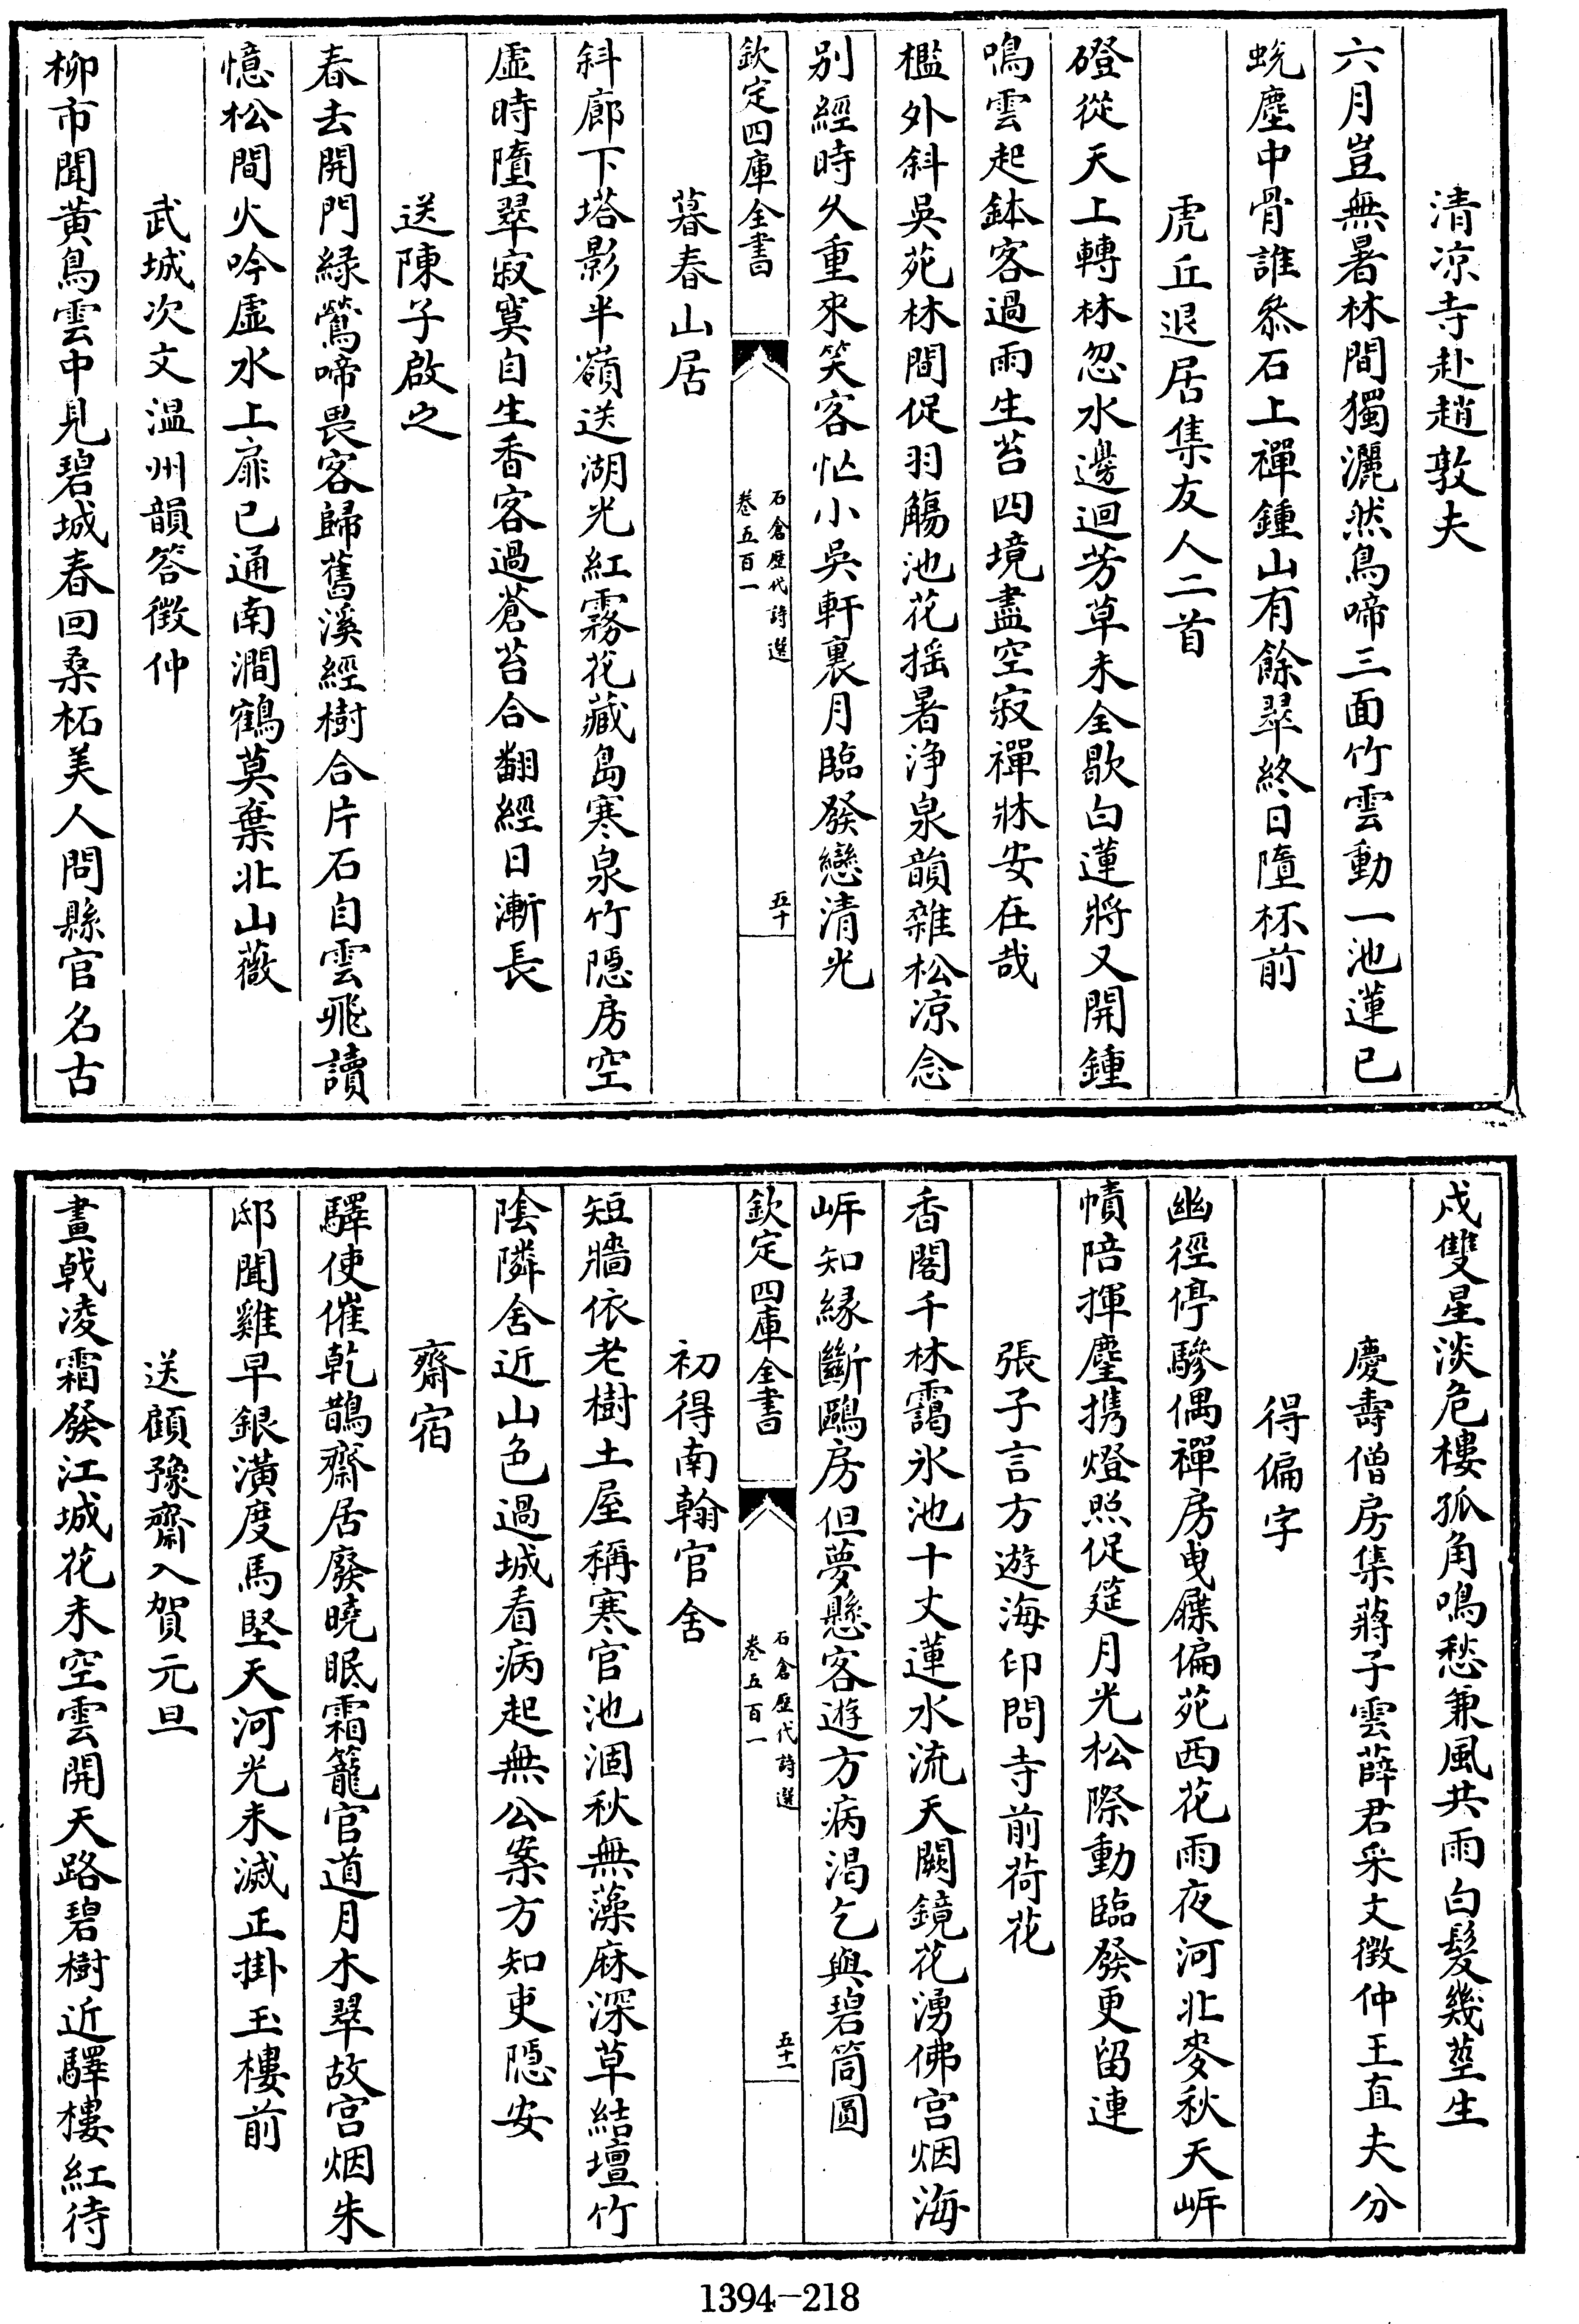 清凉寺赴趙敦夫
六月豈無暑林間獨灑然鳥啼三面竹雲動一池蓮已
蛻塵中骨誰叅石上禪鍾山有餘翠終日墮杯前
虎丘退居集友人二首
磴從天上轉林忽水邊迴芳草未全歇白蓮將又開鍾
鳴雲起鉢客過雨生苔四境盡空寂禪牀安在哉
檻外斜吳苑林間促羽觴池花揺暑浄泉韻雜松凉念
别經時久重來笑客忙小吳軒裏月臨發戀清光
欽定四庫全書
石倉歴代詩選
卷五百一
五十
暮春山居
斜廊下塔影半嶺送湖光紅霧花藏島寒泉竹隠房空
虛時墮翠寂寞自生香客過蒼苔合翻經日漸長
送陳子啟之
春去開門緑鶯啼畏客歸舊溪經樹合片石自雲飛讀
憶松間火吟虛水上扉已通南澗鶴莫棄北山薇
武城次文温州韻答徴仲
柳市聞黄鳥雲中見碧城春回桑柘美人問縣官名古
戍雙星淡危樓孤角鳴愁兼風共雨白髮幾莖生
慶壽僧房集蔣子雲薛君采文徴仲王直夫分
得偏字
幽徑停驂偶禪房曵屧偏苑西花雨夜河北麥秋天岸
幘陪揮麈携燈照促筵月光松際動臨發更留連
張子言方遊海印問寺前荷花
香閣千林靄氷池十丈蓮水流天闕鏡花湧佛宫烟海
岸知緣斷鷗房但夢懸客遊方病渴乞與碧筒圓
欽定四庫全書
石倉歴代詩選
卷五百一
五十一
初得南翰官舍
短牆依老樹土屋稱寒官池涸秋無藻麻深草結壇竹
陰隣舍近山色過城看病起無公案方知吏隠安
齋宿
驛使催乾鵲齋居廢曉眠霜籠官道月木翠故宫烟朱
邸聞雞早銀潢度馬堅天河光未滅正掛玉樓前
送顧豫齋入賀元旦
畫戟凌霜發江城花未空雲開天路碧樹近驛樓紅待
1394-218